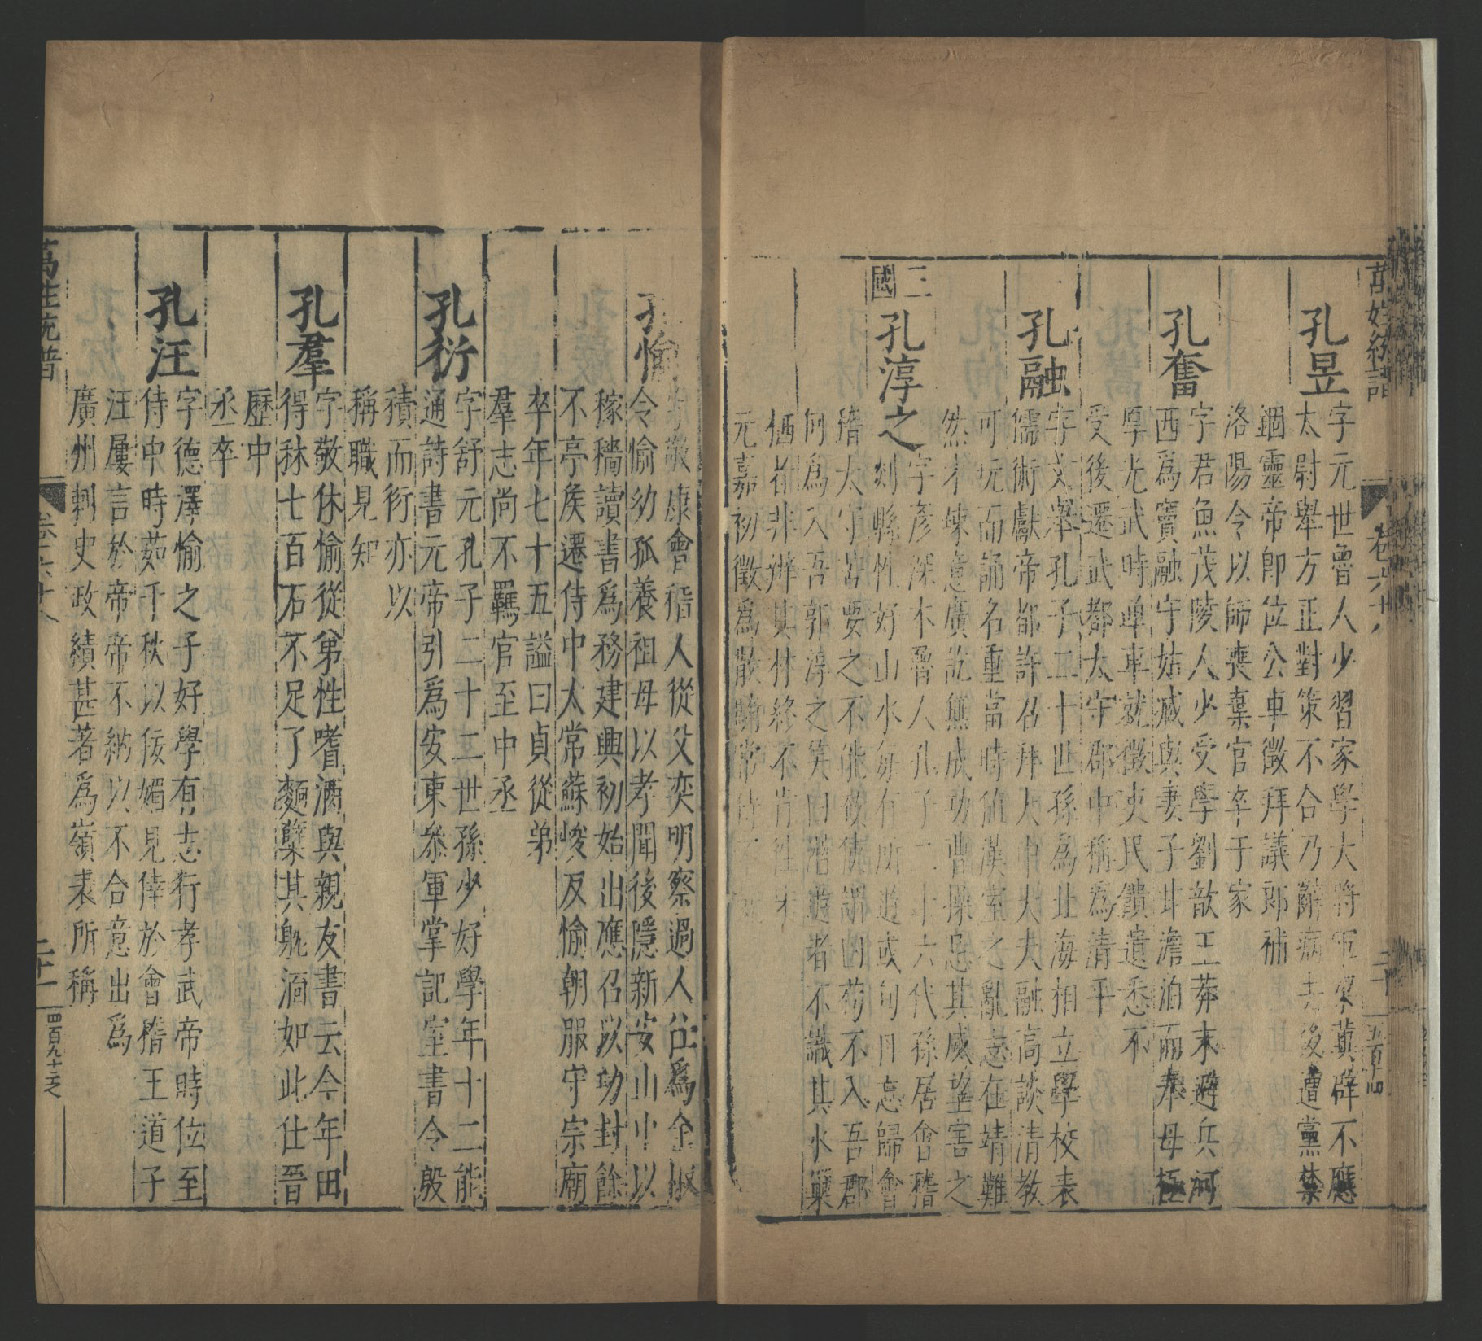 萬姓統譜
卷之六十八
二十
五百十四
孔昱
字元世魯人少習家學大將軍梁冀辟不應
太尉舉方正對策不合乃辭病去後遭黨禁
錮靈帝即位公車徵拜議郎補
洛陽令以師喪棄官卒于家
孔奮
字君魚茂陵人少受學劉歆王莽末避兵河
西為竇融守姑臧與妻子甘澹泊而奉母極
厚光武時單車就徵吏民饋遺悉不
受後遷武都太守郡中稱為清平
孔融
字文舉孔子二十世孫為北海相立學校表
儒術獻帝都許召拜大中大夫融高談清教
可玩而誦名重當時値漢室之亂志在靖難
然才疎意廣訖無成功曹操忌其威望害之
三國
孔淳之
字彥深本魯人孔子二十六代孫居會稽
剡縣性好山水每有所遊或旬月忘歸會
稽太守
為入吾郭淳之笑曰潛遊者不識其水巢
栖者非辨其林終不肯往宋
元嘉初徵為散騎常侍
孔愉
字敬康會稽人從父奕明察過人仕為全椒
令愉幼孤養祖母以孝聞後隱新安山中以
稼穡讀書為務建興初始出應召以功封餘
不亭侯遷侍中太常蘇峻反愉朝服守宗廟
卒年七十五謚曰貞從弟
羣志尚不羈官至中丞
孔衍
字舒元孔子二十二世孫少好學年十二能
通詩書元帝引為安東參軍掌記室書令殷
積而衍亦以
稱職見知
孔羣
字敬休愉從弟性嗜酒與親友書云今年田
得秫七百石不足了麴糵其躭酒如此仕晉
歷中
丞卒
孔汪
字德澤愉之子好學有志行孝武帝時位至
侍中時茹千秋以佞媚見倖於會稽王道子
汪屢言於帝帝不納以不合意出為
廣州刺史政績甚著為嶺表所稱
萬姓統譜
卷之六十八
二十一
四百九十三之